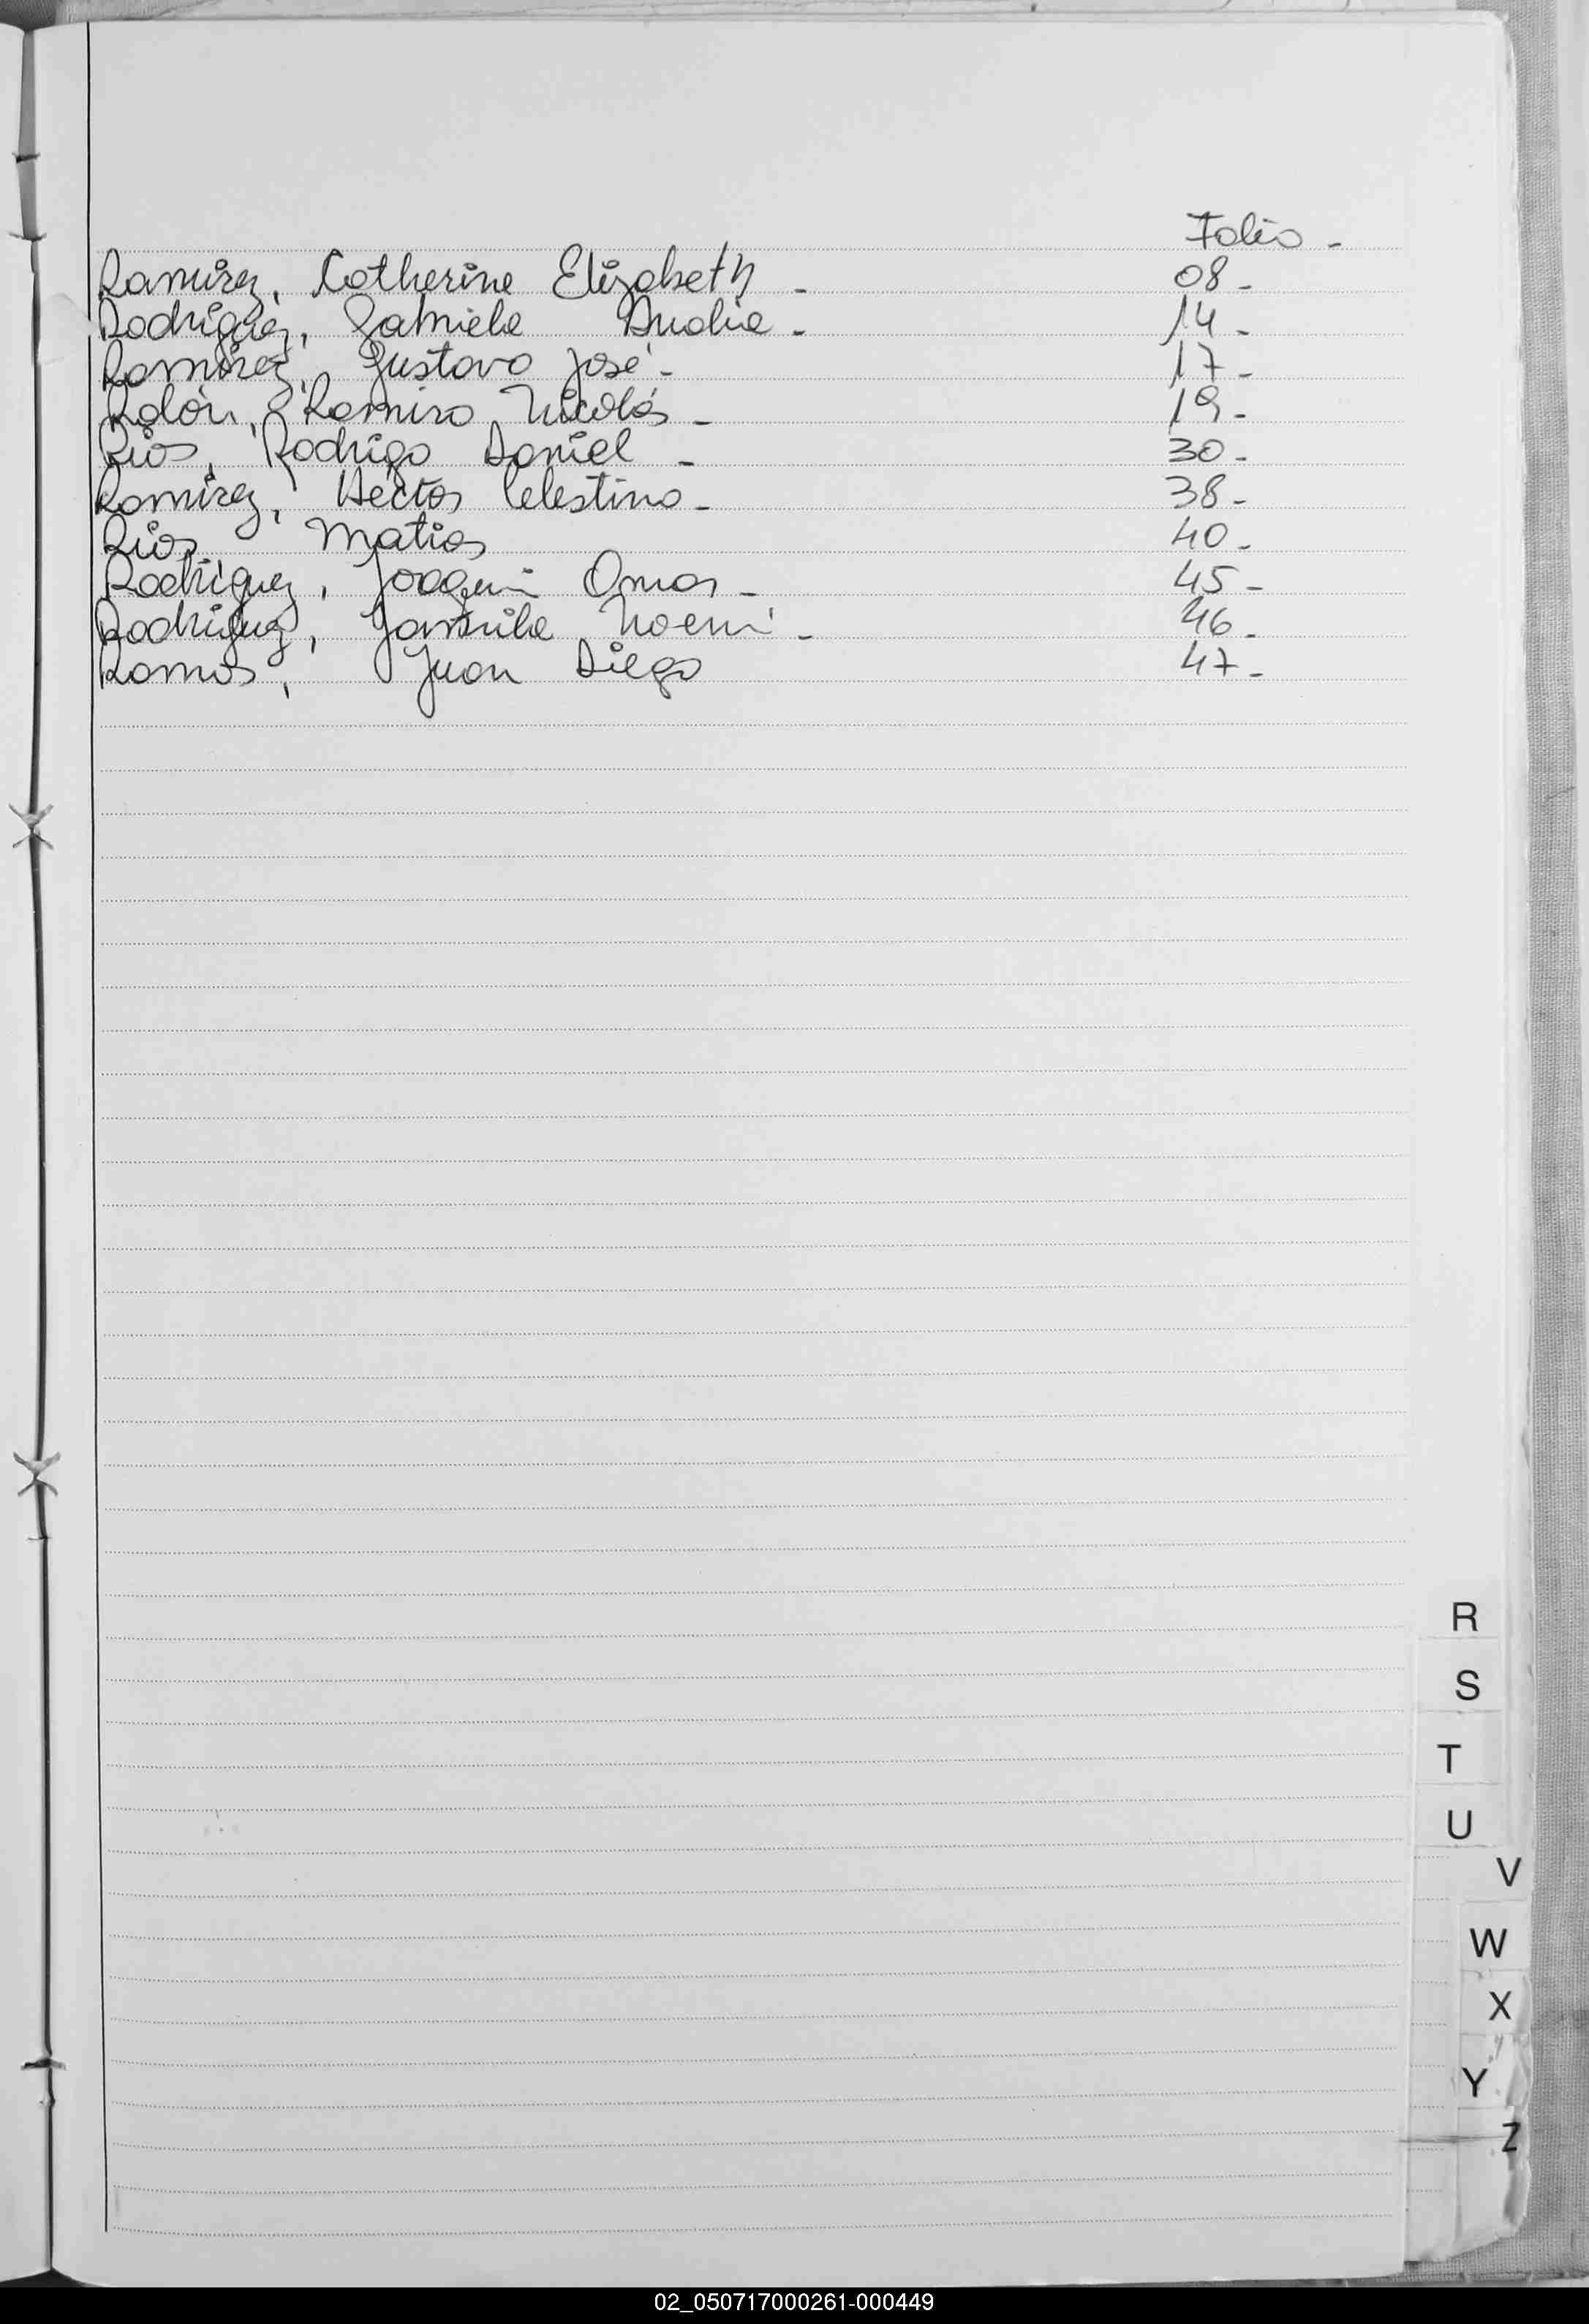 Folio -
Ramirez, Catherine Elizabeth - 08 -
Rodriguez, Gabriela Analia - 14 -
Ramirez, Gustavo José - 17 -
Rolón, Ramiro Nicolás - 19 -
Rios, Rodrigo Daniel - 30 -
Ramirez, Hector Celestino - 38 -
Rios, Matias 40 -
Rodriguez, Joaquin Omar - 45 -
Rodriguez, Yamila Noemi - 46 -
Ramos, Juan Diego 47 -
R
S
T
U
V
W
X
Y
Z
02_050717000261-000449